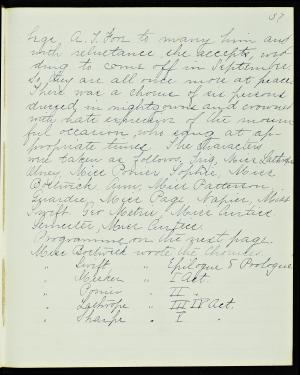 57
to marry him and
with reluctance she accepts, wed
ding to come off in September.
So they are all once more at peace.
There was a chorus of six persons
dressed in nightgowns and crowned
with hats expressive of the mourn
ful occasion, who sang at ap
propriate times. The characters
were taken as follows, Trig, Miss Lathrop
Miss Comer, Sophie, Miss
Bostwick, Ann, Miss Patterson
Miss Page, Napier, Miss
Swift, Geo Metrie, Miss Curtice
Semester, Miss Curtice.
Programme on the next page.
Miss Bostwick wrote the Choruses.
" Swift " Epilogue & Prologue
" Meeker " I Act.
" Comer " II "
" Lathrope " III IV Act.
" Sharpe " I "